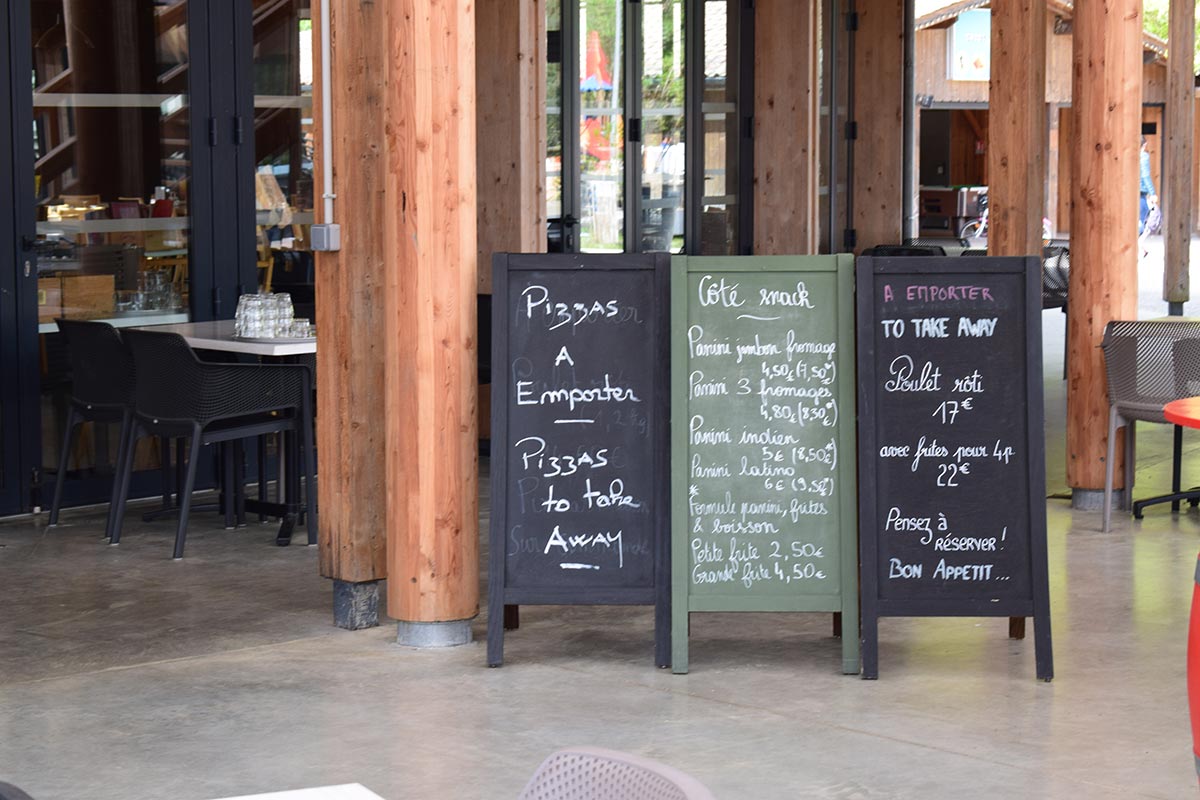 Pizzas
A
Emporter
Pizzas
to take
Away
Côté snack
Panini jambon fromage
4,50€ (7,50*)
Panini 3 fromages
4,80€ (8,30*)
Panini indien
5€ (8,50*)
Panini latino
6€ (9,50*)
*
Formule panini, frites
& boisson
Petite frite 2,50€
Grande frite 4,50€
A EMPORTER
TO TAKE AWAY
Poulet rôti
17€
avec frites pour 4p
22€
Pensez à
réserver!
Bon Appetit...